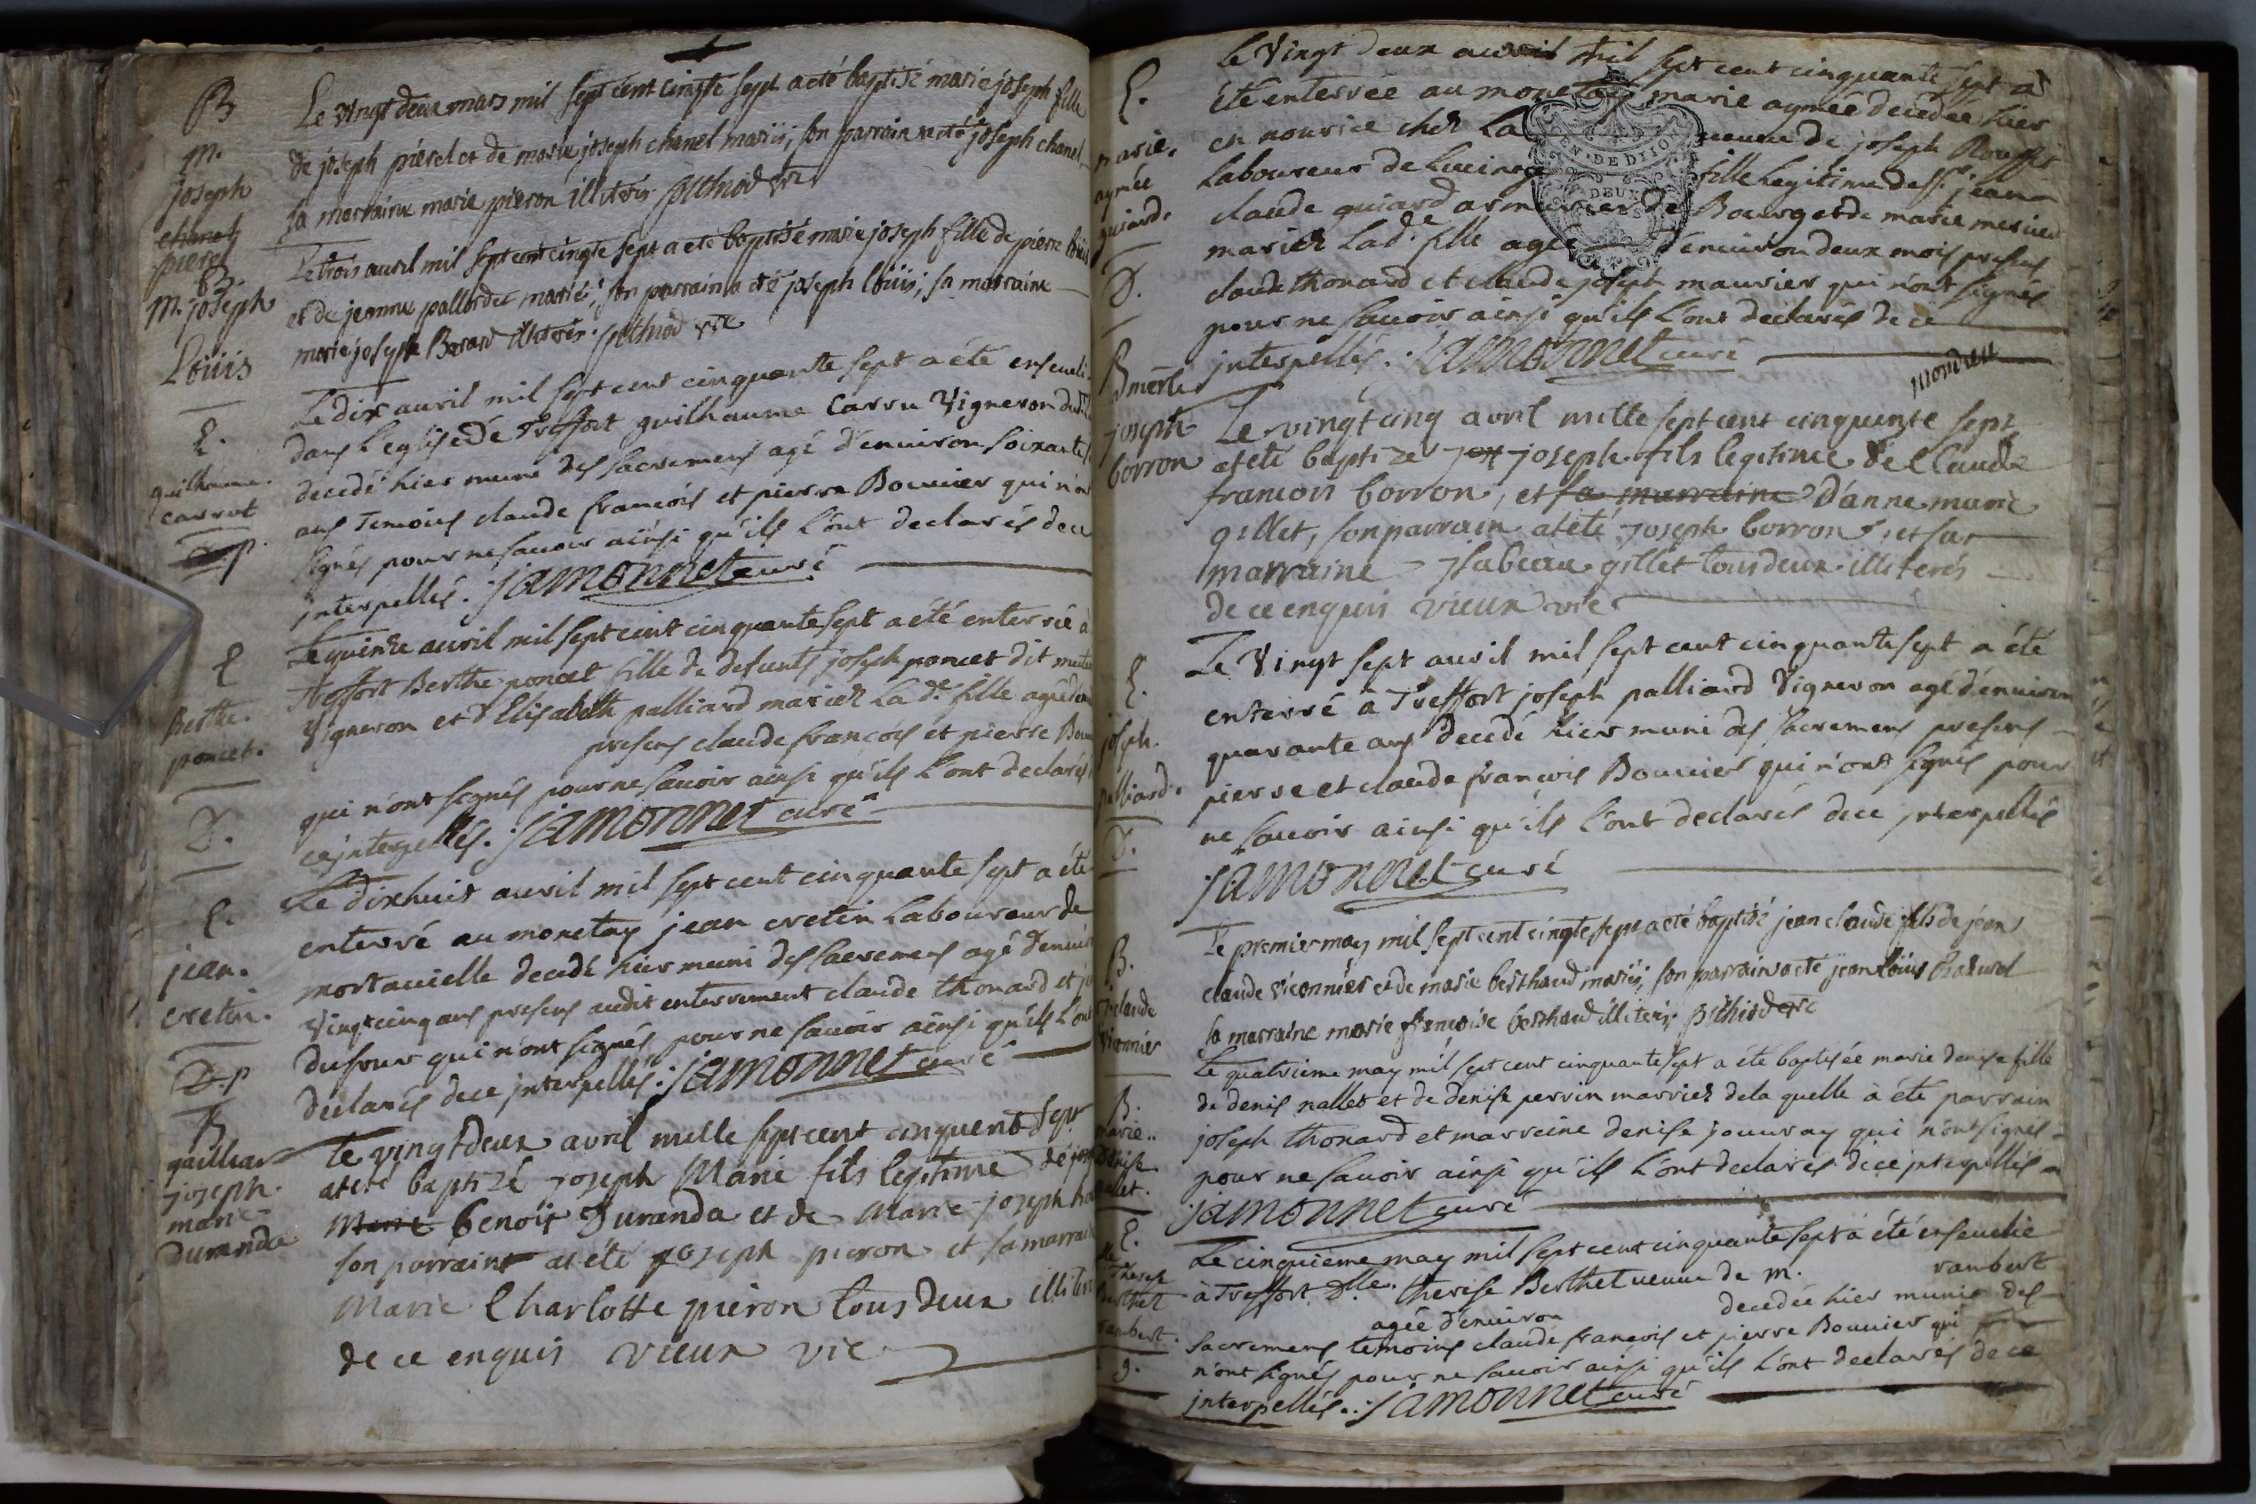 B
m.
joseph
chanel
pierel
Le vingt deux mars mil sept cent cinqte sept a eté baptisé marie joseph fille
de joseph pierel et de marie joseph chanel mariés; son parrain a eté joseph chanel
sa marraine marie pieron illiterés vre
B.
m. joseph
Loüis
Le trois avril mil sept cent cinqte sept a eté baptisé marie joseph fille de pierre loüis
et de jeanne mariés; son parrain a eté joseph loüis; sa marraine
marie joseph illiterés vre
E.
guilhaume.
carrut
D.p.
Le dix avril mil sept cent cinquante sept a été enseveli
dans l'eglise de Treffort guilhaume carru vigneron
decedé hier muni des sacremens agé d'environ soixante
ans Temoins claude francois et pierre Bouvier qui n'ont
signés pour ne savoir ainsi qu'ils l'ont declarés de ce
interpellés. jamonnet curé
E
Berthe.
poncet.
D.
Le quinze avril mil sept cent cinquante sept a été enterrée à
Treffort Berthe poncet fille de defunts joseph poncet dit
vigneron et d'Elisabeth palliard mariez la de. fille agée
presens claude francois et pierre
qui n'ont signés pour ne savoir ainsi qu'ils l'ont declarés
ce interpellés. jamonnet curé
E.
jean.
cretin.
D.p
Le dix huit avril mil sept cent cinquante sept a été
enterré au monetay jean cretin Laboureur de
mortavielle decedé hier muni des sacremens agé
vingt cinq ans presens audit enterrement claude thonard et
dufour qui n'ont signés pour ne savoir ainsi qu'ils l'ont
declarés de ce interpellés. jamonnet curé
B
joseph.
marie
duranda
Le vingt deux avril mille sept cent cinquente sept
at eté baptizé joseph Marie fils legitime de
Marie benoit Duranda et de Marie joseph
son parraint at été joseph pieron et sa marraine
Marie Charlotte pieron tous deux
de ce enquis vieux vie
E.
marie.
aymée
guiard.
D.
Le vingt deux avril mil sept cent cinquante sept a
été enterrée au monetay marie aymée decedée hier
en nourice chez la veuve de joseph
Laboureur de Lucinge fille legitime de Sr. jean
claude guiard armurier de Bourg et de marie mercier
mariez Lade. fille agée d'environ deux mois presens
claude thonard et claude joseph maurier qui n'ont signés
pour ne savoir ainsi qu'ils l'ont declarés de ce
interpellés. jamonnet curé
EN DE DIJON
DEUX
B
joseph
borron
Le vingt cinq avril mille sept cent cinquente sept
at eté baptize jos joseph fils legitime de Claude
francois borron, et sa marraine d'anne marie
gillet, son parrain at eté joseph borron, et sa
marraine Isabeau gillet tous deux illiterés
de ce enquis vieux vie
E.
joseph.
palliard.
D.
Le vingt sept avril mil sept cent cinquante sept a été
enterré à Treffort joseph palliard vigneron agé d'environ
quarante ans decedé hier muni des sacremens presens
pierre et claude francois Bouvier qui n'ont signés pour
ne savoir ainsi qu'ils l'ont declarés de ce interpellés
jamonnet curé
B.
claude
vionnier
Le premier may mil sept cent cinqte sept a eté baptisé jean claude fils de jean
claude vionnier et de marie berthaud mariés; son parrain a eté jean loüis
sa marraine marie francoise berthaud illiterés vre
B.
marie..
denise
nallet.
Le quatrieme may mil sept cent cinquante sept a été baptisée marie denise fille
de denis nallet et de denise perrin marriez de la quelle à été parrain
joseph thonard et marreine denise jouvray qui n'ont signés
pour ne savoir ainsi qu'ils l'ont declarés de ce interpellés
jamonnet curé
E.
Therese
Berthet
rambert.
g.
Le cinquieme may mil sept cent cinquante sept a été ensevelie
à Treffort Dlle. therese Berthet veuve de m. rambert
agée d'environ decedée hier munie des
sacremens temoins claude francois et pierre Bouvier qui
n'ont signés pour ne savoir ainsi qu'ils l'ont declarés de ce
interpellés.. jamonnet curé